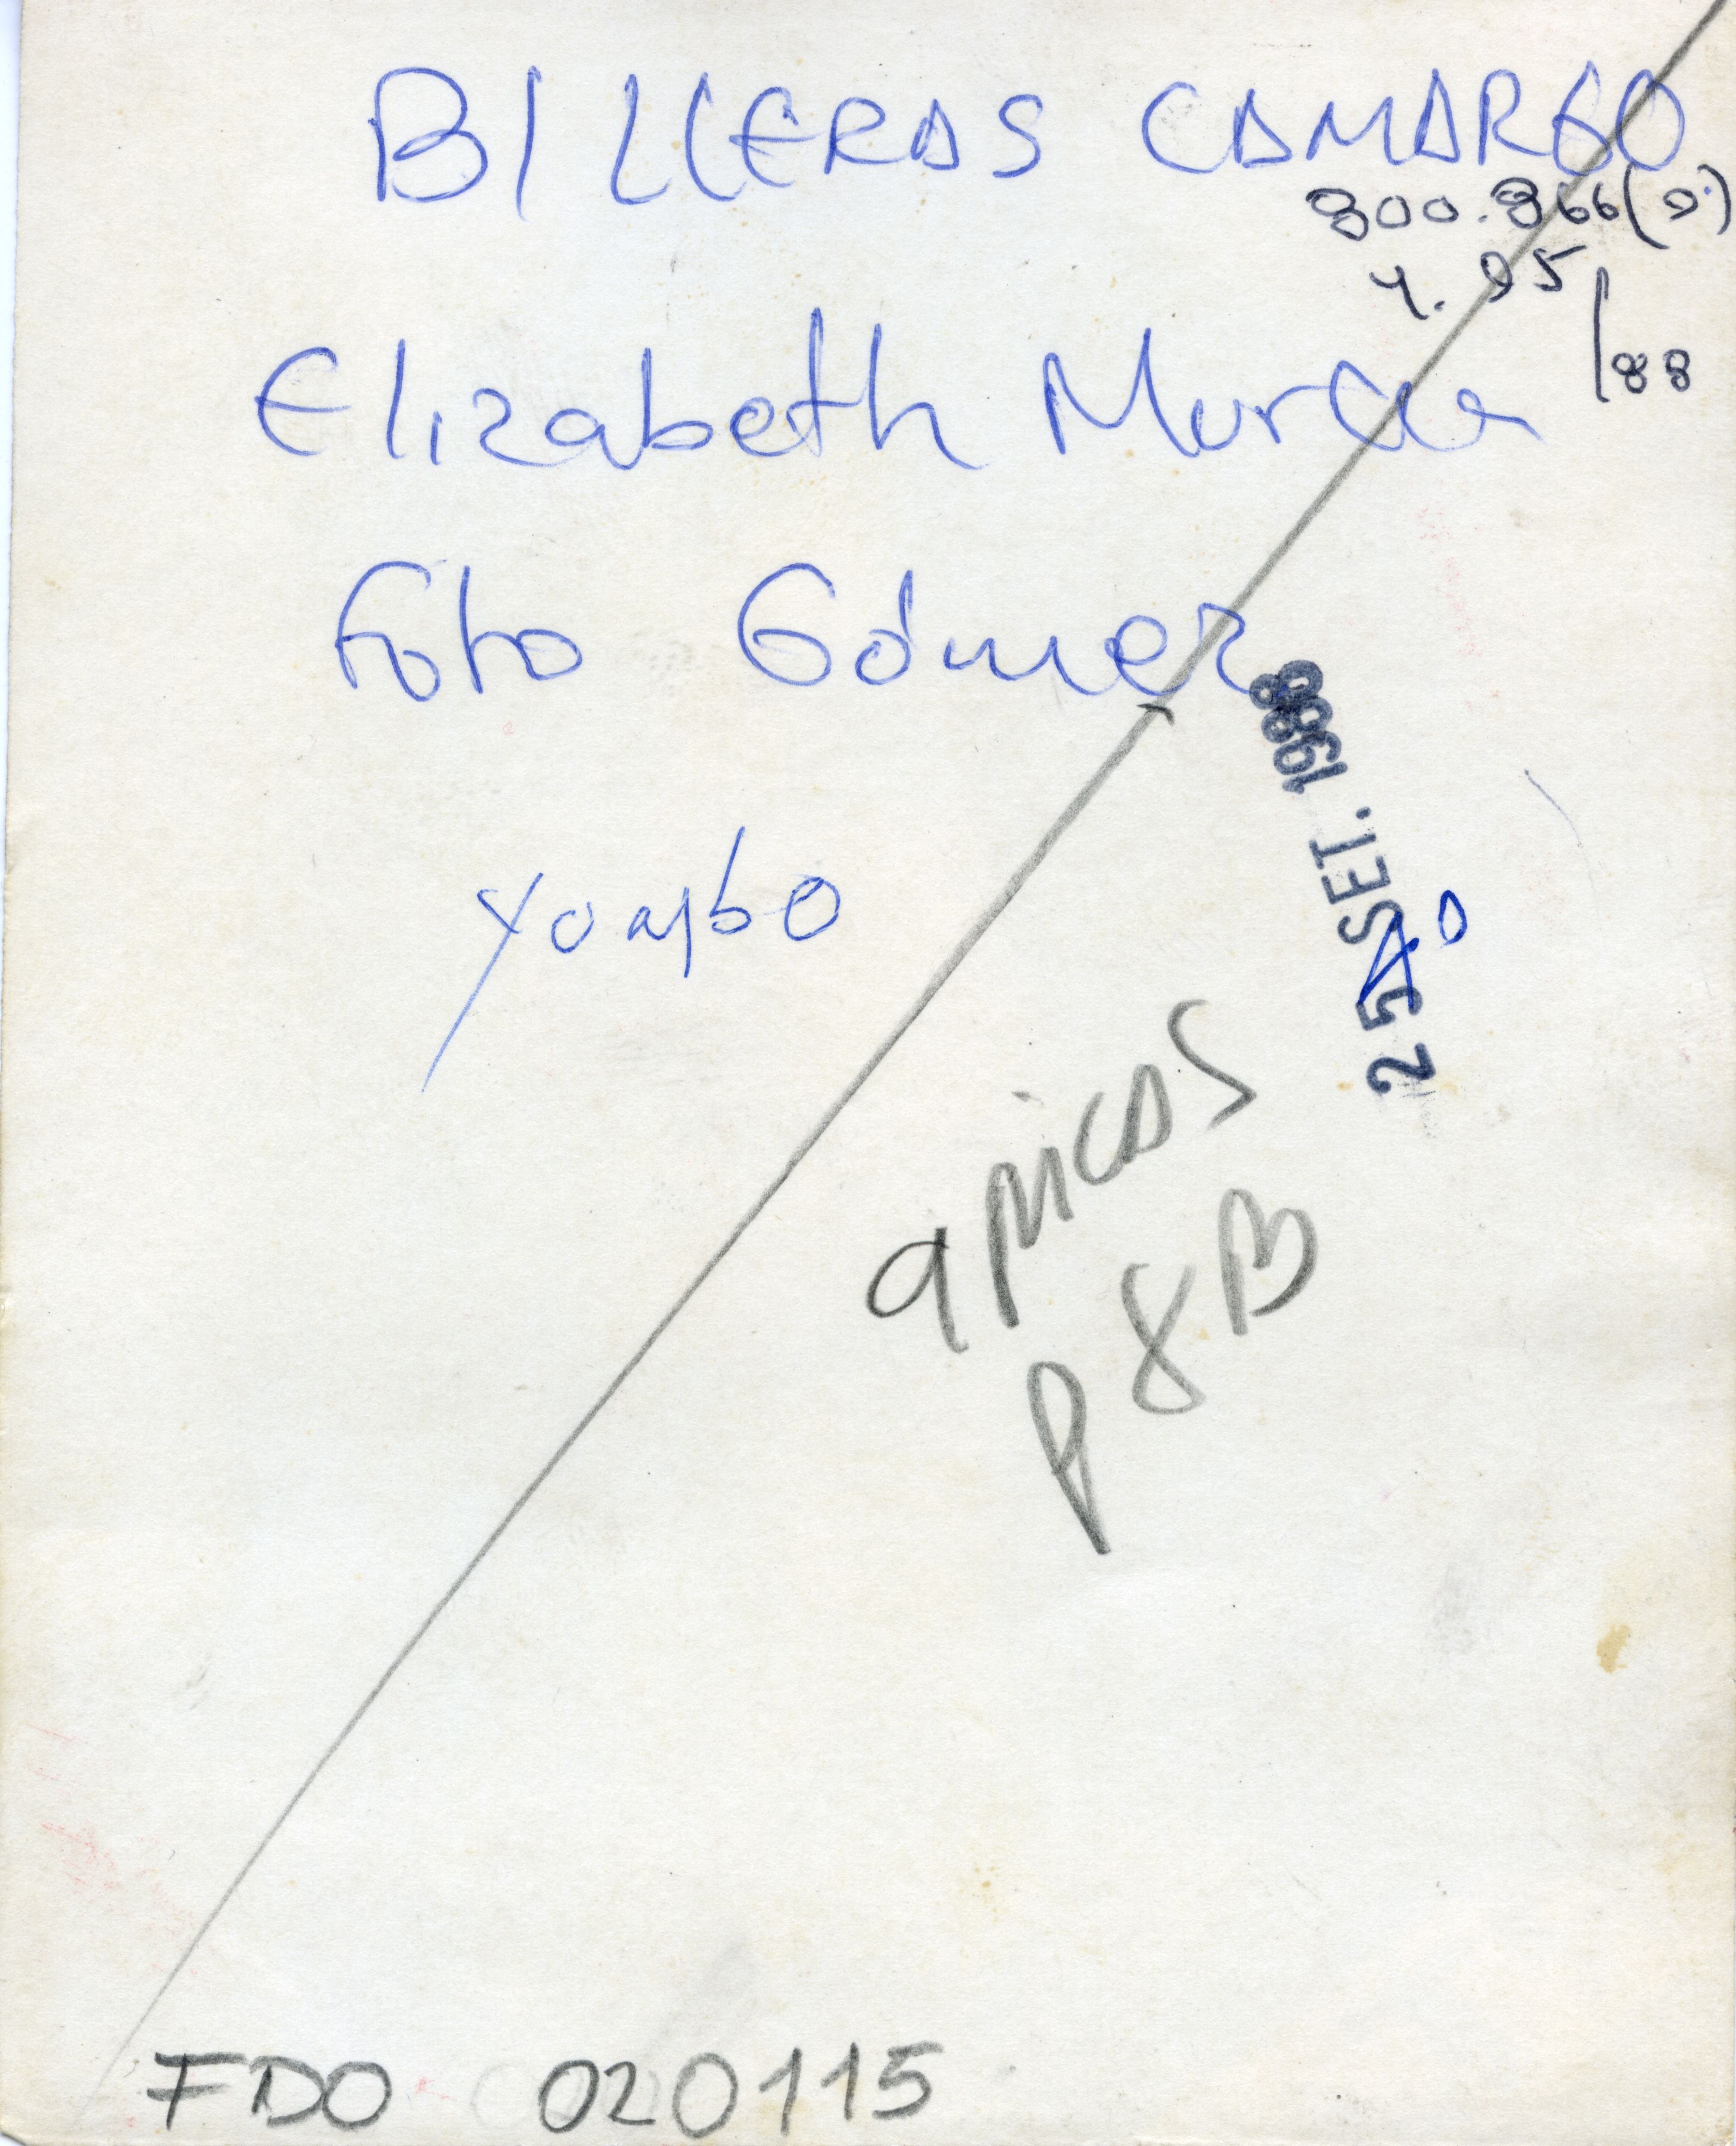 BILLERAS CAMARGO
800.866(9)
4.95
/88
Elizabeth Murcia
Foto Gómez
25 SET. 1988
9 picas
P 8B
FDO 020115